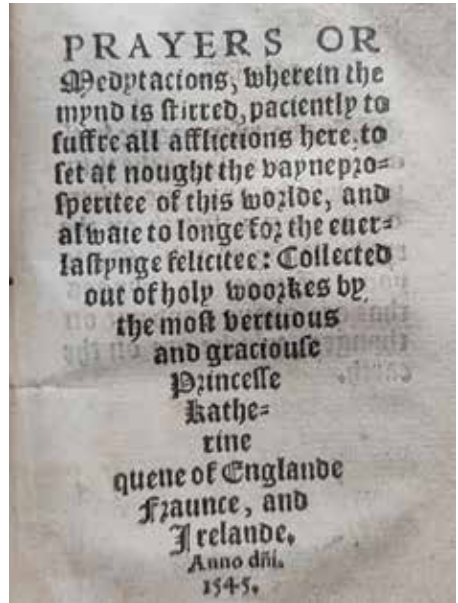 PRAYERS OR
Medytacions, wherein the
mynd is stirred, paciently to
suffre all afflictions here, to
set at nought the vaynepro=
speritee of this worlde, and
alwaie to longe for the euer=
lastynge felicitee: Collected
out of holy woorkes by
the most vertuous
and graciouse
Princesse
Kathe=
rine
quene of Englande
Fraunce, and
Irelande.
Anno dñi.
1545.